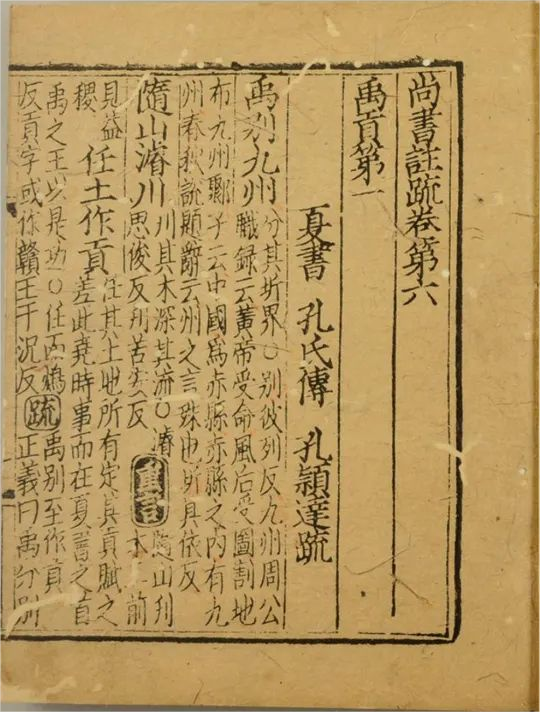 尚書註疏卷第六
禹貢第一
夏書 孔氏傳 孔頴達疏
禹別九州
分其圻界〇別彼列反九州周公
職錄云黃帝受命風后受圖割地
布九州鄹子云中國爲赤縣赤縣之內有九
州春秋說題辭云州之言殊也圻具依反
隨山濬川
刊其木深其流〇濬
思俊反刋苦安反
重言
隨山刊
木二前
見益
稷
任土作貢
任其土地所有定其貢賦之
差此堯時事而在夏書之首
禹之王以是功〇任而鴆
反貢字或作贛王于况反
疏
禹別至作貢
正義曰禹分別